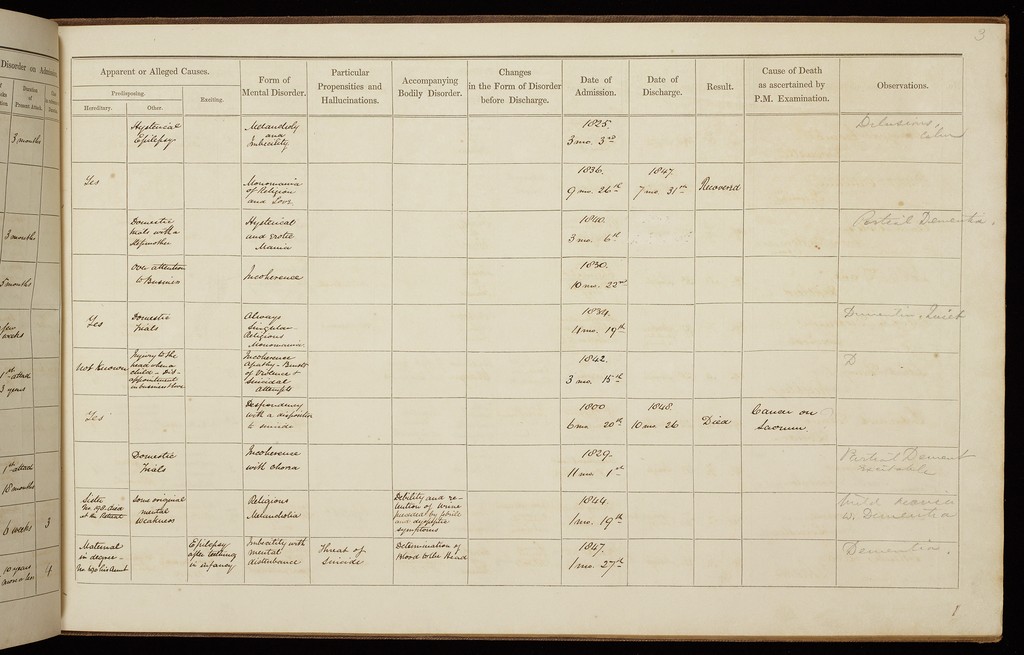 3
Disorder on Admission.
Duration of Present Attack.
Apparent or Alleged Causes.
Predisposing.
Hereditary.
Other.
Exciting.
Form of
Mental Disorder.
Particular
Propensities and
Hallucinations.
Accompanying
Bodily Disorder.
Changes
in the Form of Disorder
before Discharge.
Date of
Admission.
Date of
Discharge.
Result.
Cause of Death
as ascertained by
P.M. Examination.
Observations.
3 months
Hysterical
Epilepsy
Melancholy
and
Imbecility.
1825.
3 mo. 3rd
Delusions,
Yes
Monomania
of Religion
and Love.
1836.
9 mo. 26th
1847
7 mo. 31st
Recovered
3 months
Domestic
trials with a
Stepmother
Hysterical
and Erotic
Mania
1840.
3 mo. 6th
Partial Dementia.
5 months
Over attention
to Business
Incoherence
1830.
10 mo. 22nd
few
weeks
Yes
Domestic
Trials
Always
Singular
Religious
Monomania.
1834.
11 mo. 19th
Dementia. Quiet
1st attack
3 years
Not Known
Injury to the
head when a
child - Dis-
appointment
in business & love
Incoherence
Apathy - Bursts
of Violence &
Suicidal
Attempts
1842.
3 mo. 15th
D
Yes
Despondency
with a disposition
to suicide
1800
6 mo. 20th
1848.
10 mo. 26
Died
Cancer on
Sacrum.
1st attack
18 months
Domestic
Trials
Incoherence
with Chorea
1829.
11 mo. 1st
Partial Dement
6 weeks
3
Sister
No. 198. died
at the Retreat
Some original
mental
weakness
Religious
Melancholia
Debility and re-
tention of Urine
preceded by febrile
and dyspeptic
symptoms
1844.
1 mo. 19th
Dementia
10 years
4
Maternal
in degree -
No. 690 his Aunt
Epilepsy
after teething
in infancy
Imbecility with
mental
disturbance
Threat of
Suicide
Determination of
Blood to the Head
1847.
1 mo. 27th
Dementia.